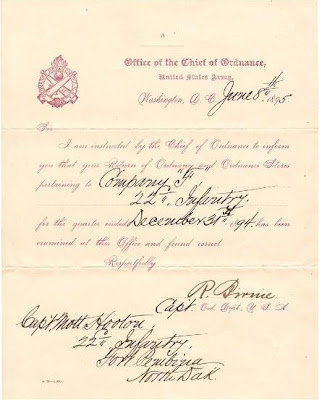 Office of the Chief of Ordnance,
United States Army,
Washington, D.C. June 8th 1895
Sir
I am instructed by the Chief of Ordnance to inform
you that your Return of Ordnance and Ordnance Stores
pertaining to Company "F"
22d. Infantry.
for the quarter ended December 31st 1894. has been
examined at this Office and found correct.
Respectfully
R. Birnie
Capt. Ord. Dept., U.S.A.
Capt Mott Hooton
22d Infantry.
Fort Pembina
North Dak.